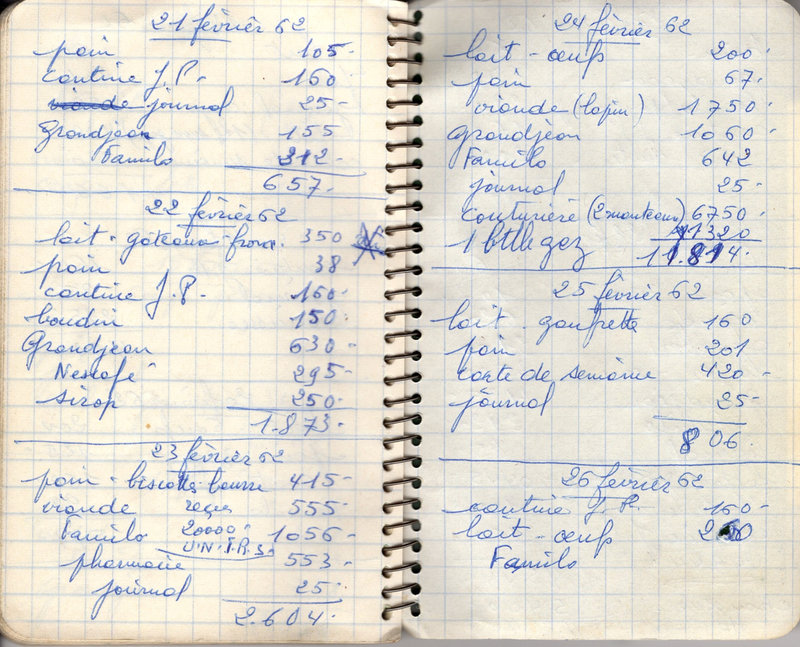 21 février 62
pain 105-
cantine J.P. - 160
viande journal 25-
Grandjean 155
Familo 312-
657-
22 février 62
lait - gâteaux - from. 350
pain 38
cantine J.P. - 160-
boudin 150-
Grandjean 630-
Nescafé 295-
sirop 250-
1.873-
23 février 62
pain - biscottes beurre 415-
viande 555-
reçu
20000
U.N.I.R.S.
Familo 1056-
pharmacie 553-
journal 25-
2.604-
24 février 62
lait - œufs 200-
pain 67-
viande (lapin) 1750-
Grandjean 1060-
Familo 642
journal 25-
couturière (2 manteaux) 6750-
1 btlle gaz 1320
11.814-
25 février 62
lait - gaufrette 160
pain 201
carte de semaine 420-
journal 25-
806-
26 février 62
cantine J.P. 160-
lait - œufs
Familo